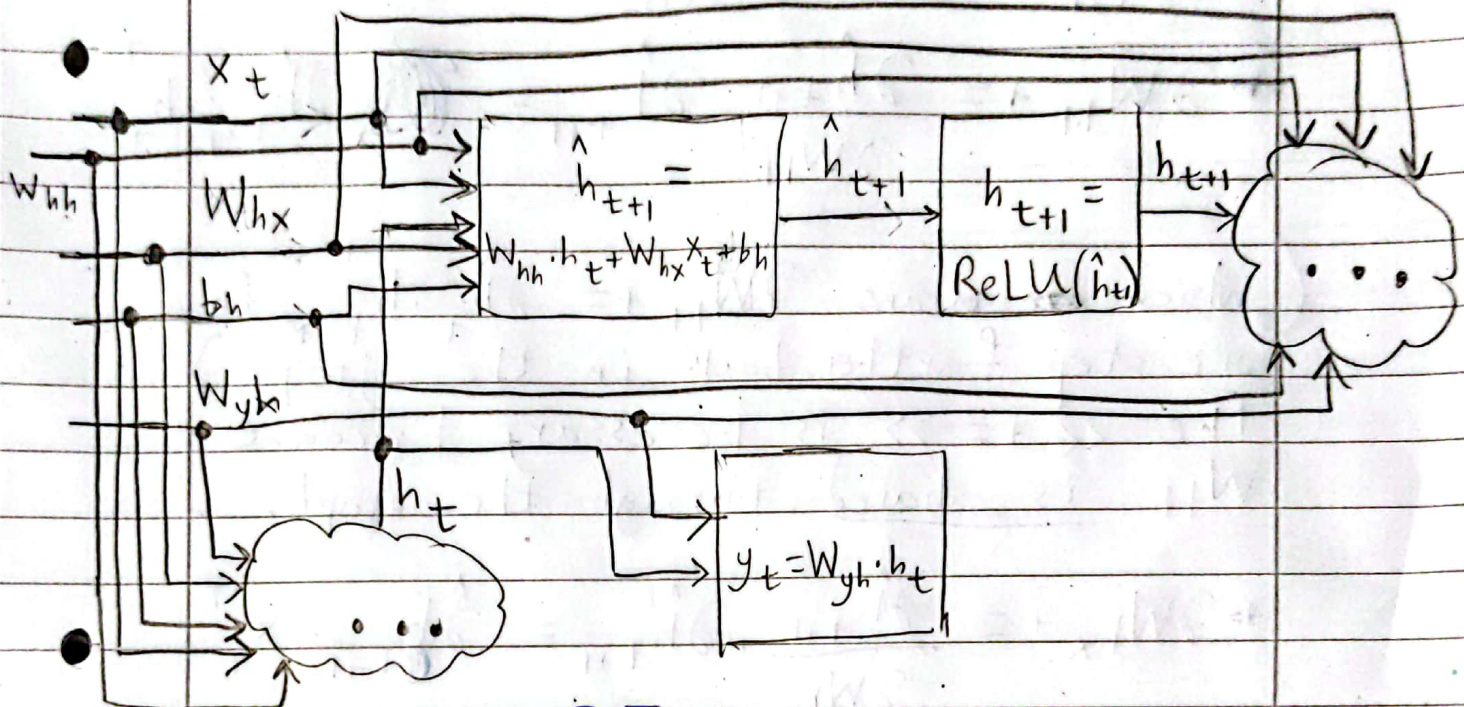 x t
W hh
W hx
bh
W yh
ĥ t+1 =
W hh · h t + W hx x t + bh
ĥ t+1
h t+1 =
ReLU(ĥ t+1)
h t+1
...
h t
y t = W yh · h t
...